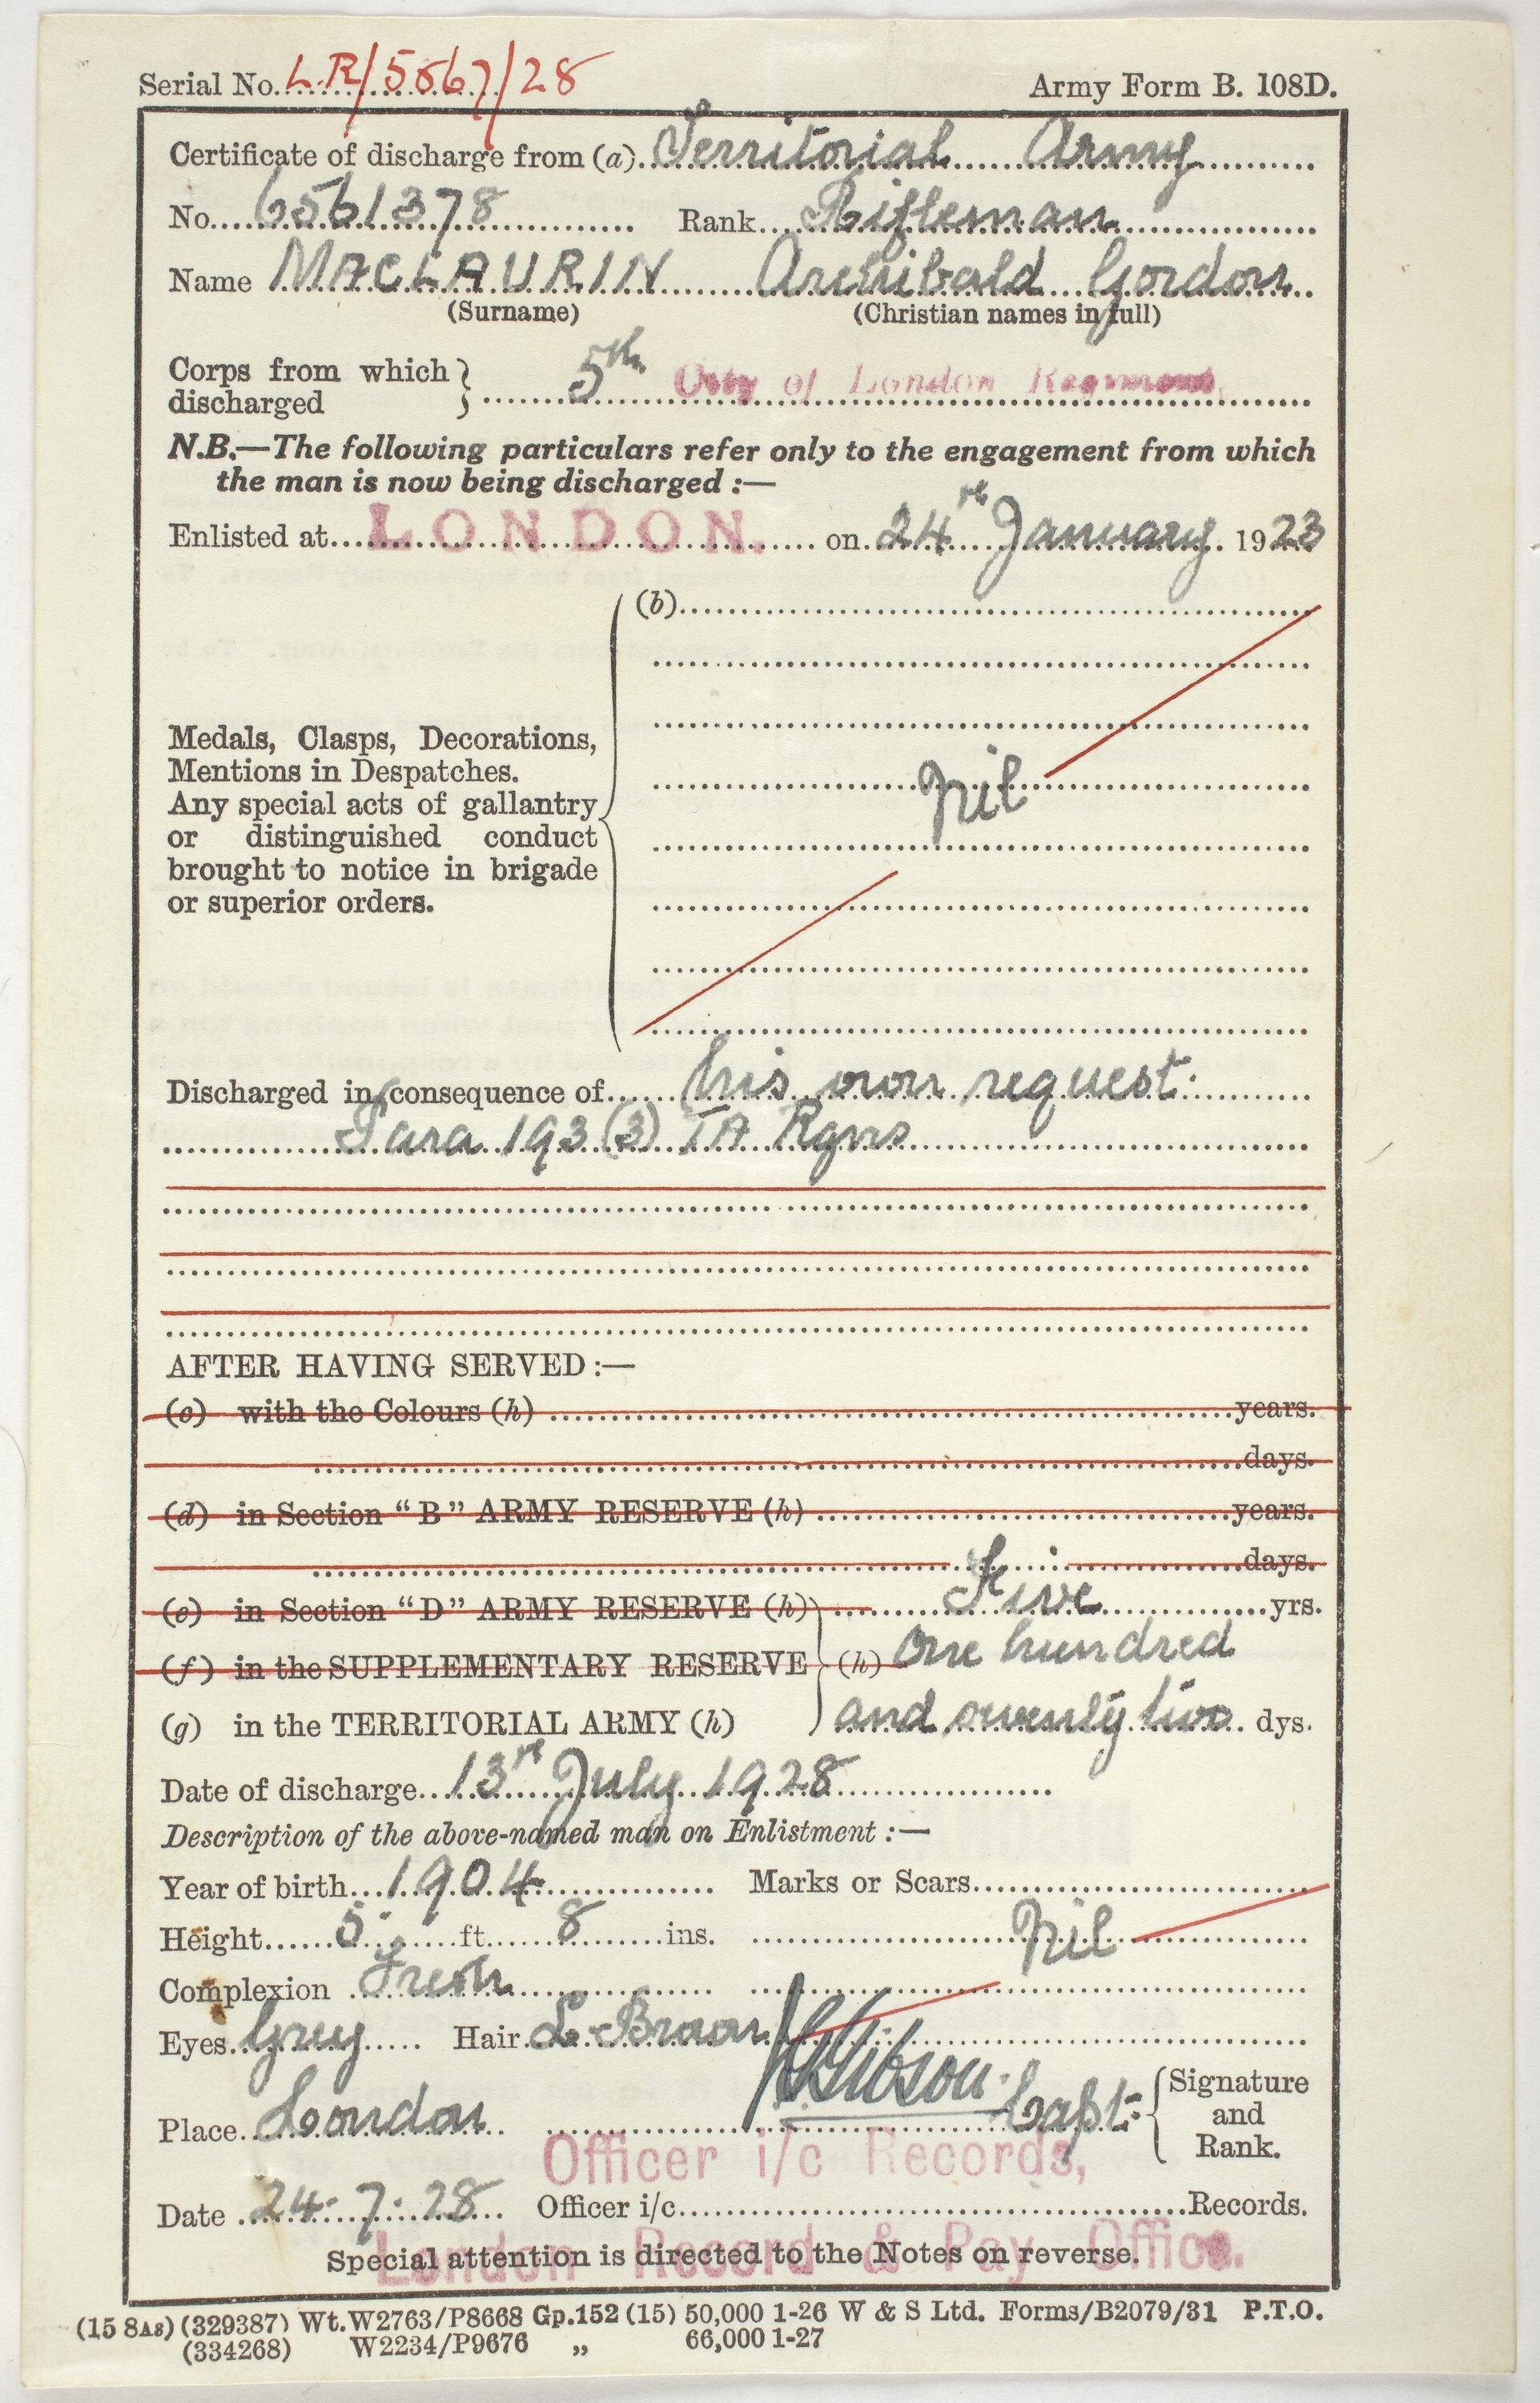 Serial No. L.R/5567/28 Army Form B. 108D.
Certificate of discharge from (a) Territorial Army
No. 6561378 Rank Rifleman
Name MACLAURIN Archibald Gordon
(Surname) (Christian names in full)
Corps from which discharged 5th City of London Regiment
N.B.—The following particulars refer only to the engagement from which
the man is now being discharged :—
Enlisted at LONDON. on 24th January 1923
(b)
Medals, Clasps, Decorations,
Mentions in Despatches.
Any special acts of gallantry
or distinguished conduct
brought to notice in brigade
or superior orders.
Nil
Discharged in consequence of his own request.
Para 193 (3) TA Rgns
AFTER HAVING SERVED :—
(c) with the Colours (h) years.
days.
(d) in Section "B" ARMY RESERVE (h) years.
days.
(e) in Section "D" ARMY RESERVE (h) Five yrs.
(f) in the SUPPLEMENTARY RESERVE (h) One hundred
(g) in the TERRITORIAL ARMY (h) and seventy two dys.
Date of discharge 13th July 1928
Description of the above-named man on Enlistment :—
Year of birth 1904 Marks or Scars
Height 5 ft. 8 ins. Nil
Complexion Fresh
Eyes Grey Hair L. Brown
Place London Gibson Capt. Signature and Rank.
Officer i/c Records,
Date 24.7.28 Officer i/c Records.
London Record & Pay Office.
Special attention is directed to the Notes on reverse.
(15 8As) (329387) Wt. W2763/P8668 Gp.152 (15) 50,000 1-26 W & S Ltd. Forms/B2079/31 P.T.O.
(334268) W2234/P9676 „ 66,000 1-27